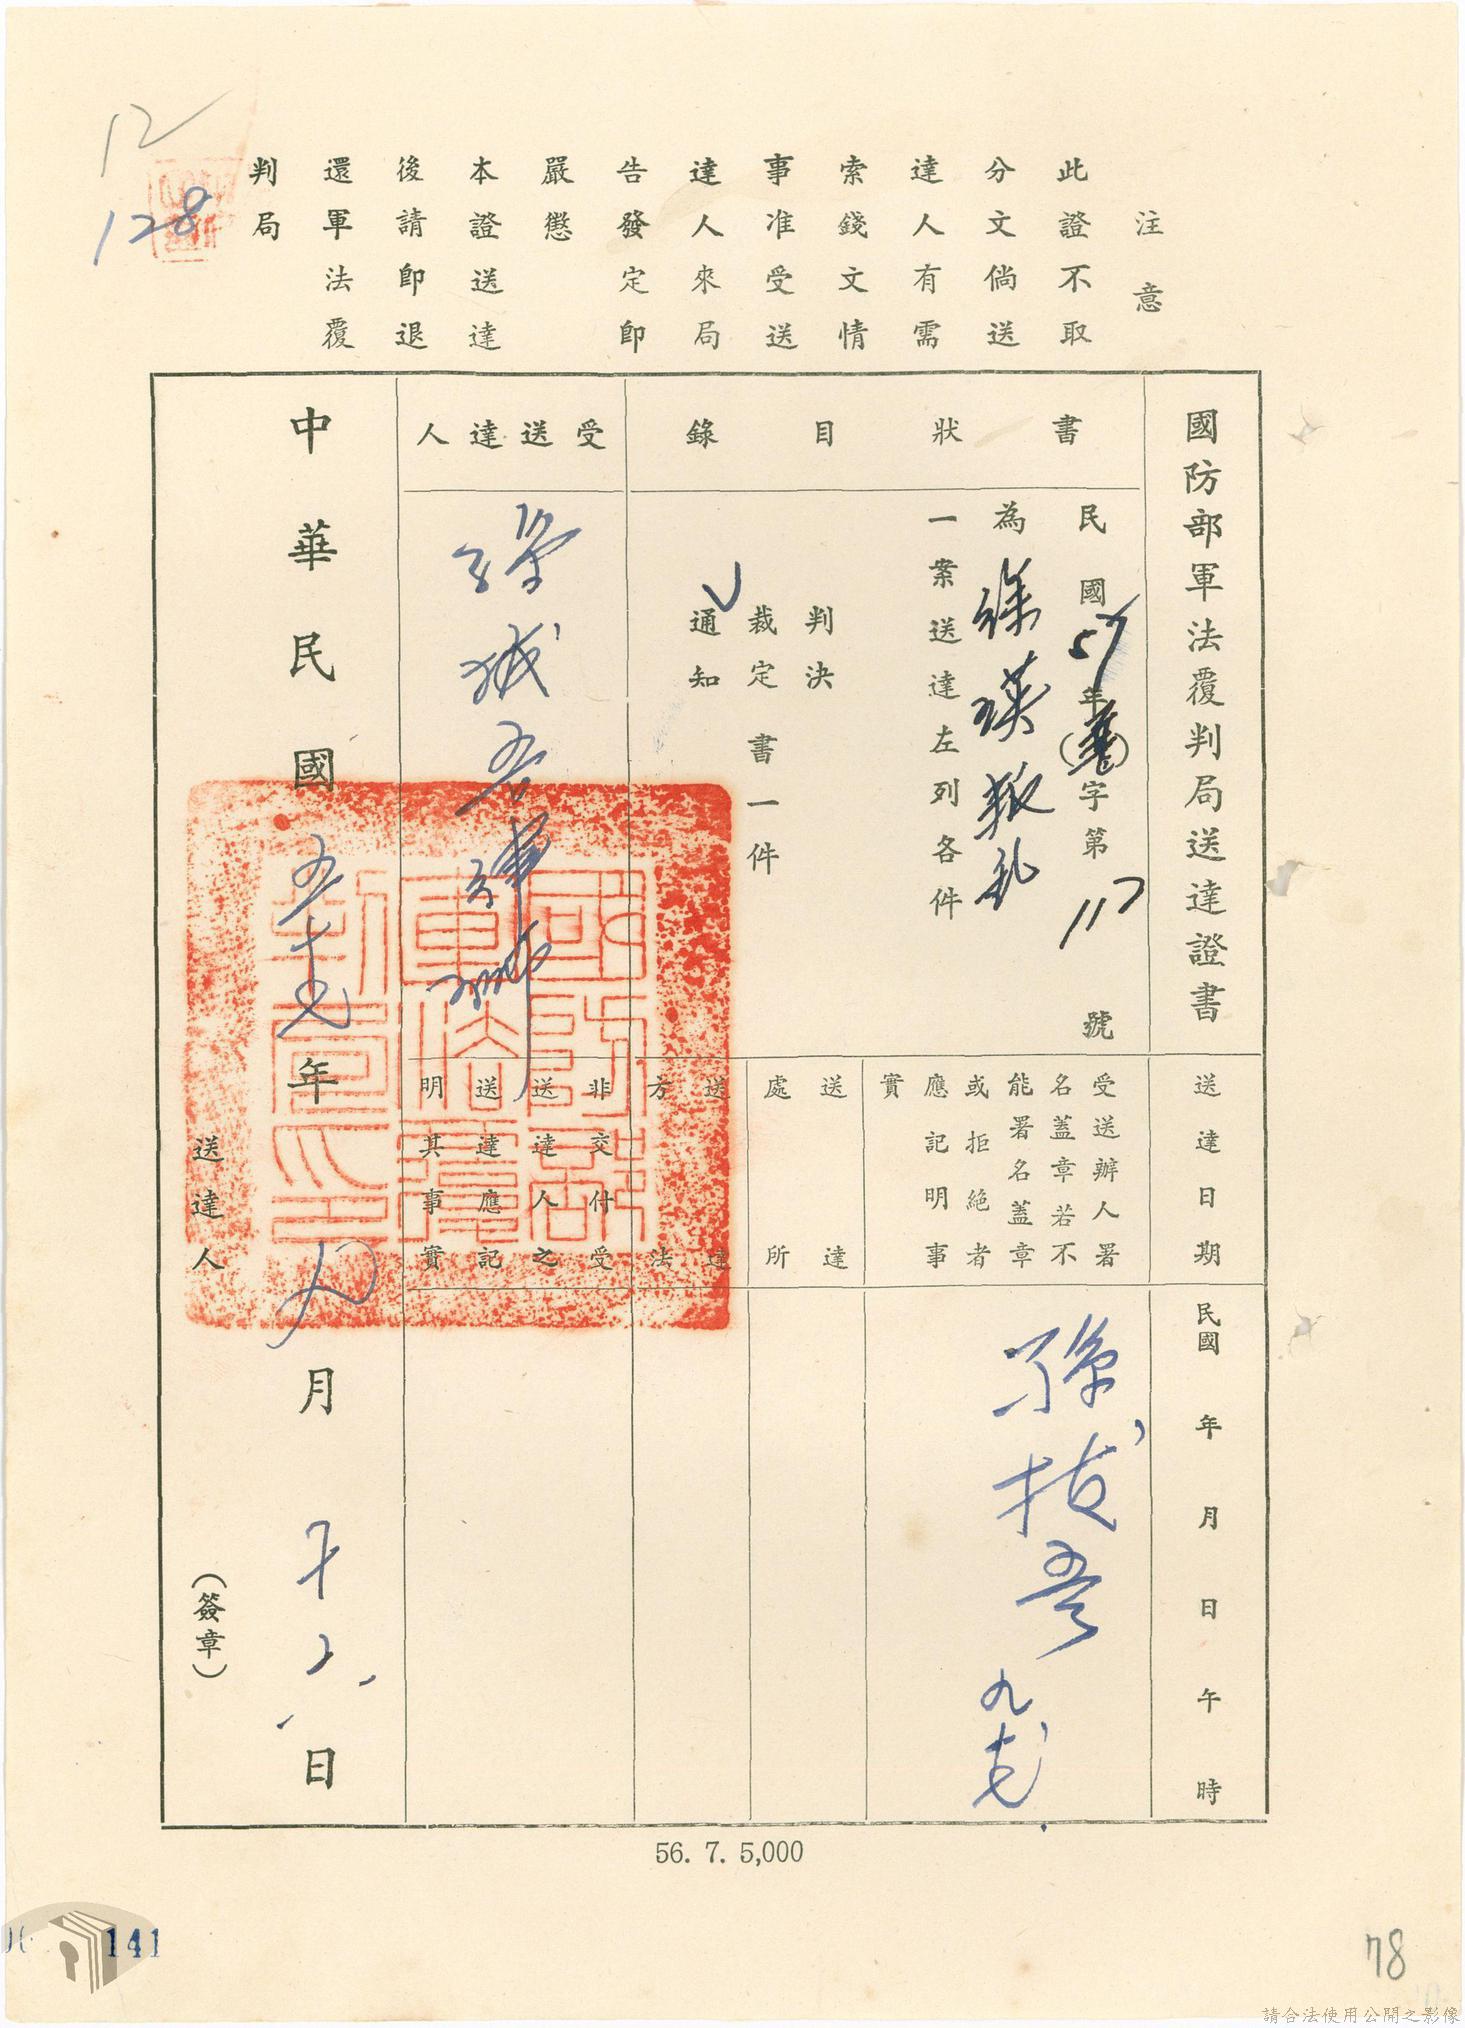 注意
此證不取
分文倘送
達人有需
索錢文情
事准受送
達人來局
告發定即
嚴懲
本證送達
後請即退
還軍法覆
判局
12
128
國防部軍法覆判局送達證書
書狀目錄
民國57年()字第117號
為徐瑛叛亂
一案送達左列各件
判決
裁定書一件
通知
受送達人
孫拔吾律師
中華民國五七年八月十六日
送達人
(簽章)
送達日期
民國年月日午時
受送辦人署
名蓋章若不
能署名蓋章
或拒絕者
應記明事
實
孫拔吾
九、七
送達
處所
送達
方法
非交付受
送達人之
送達應記
明其事實
56. 7. 5,000
141
78
請合法使用公開之影像